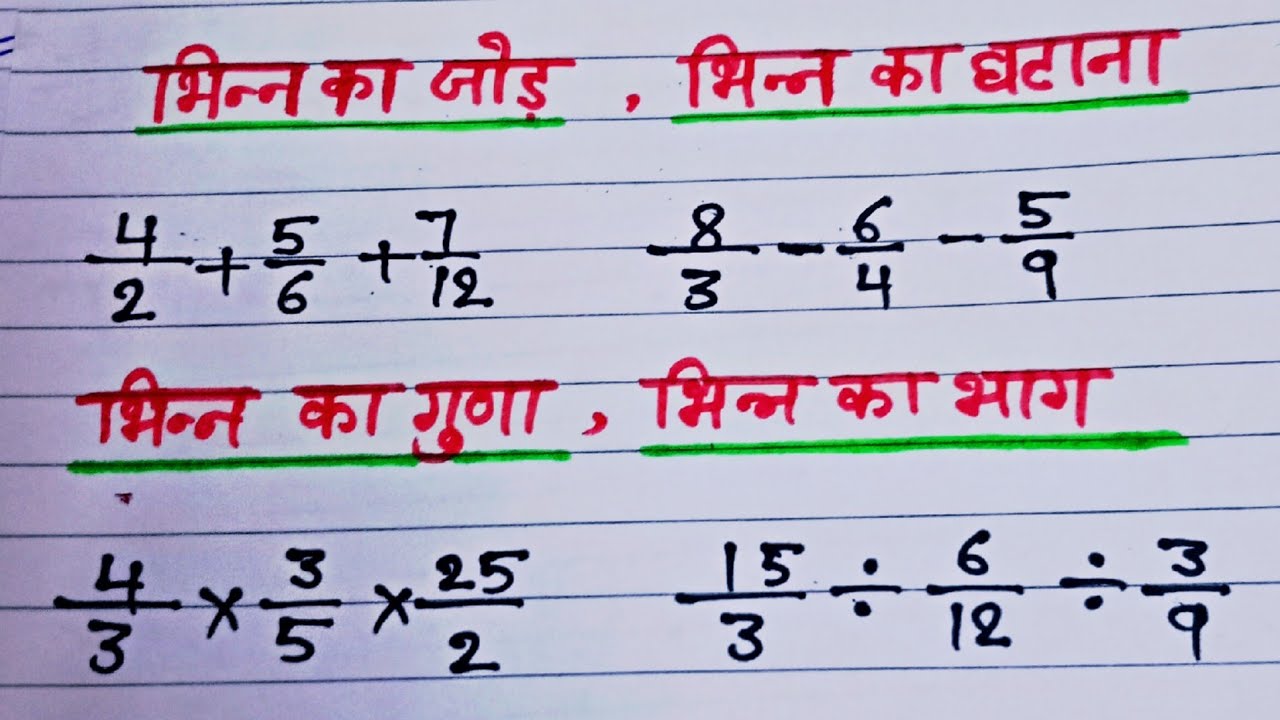 भिन्न का जोड़ , भिन्न का घटाना
4/2 + 5/6 + 7/12 8/3 - 6/4 - 5/9
भिन्न का गुणा , भिन्न का भाग
4/3 × 3/5 × 25/2 15/3 ÷ 6/12 ÷ 3/9